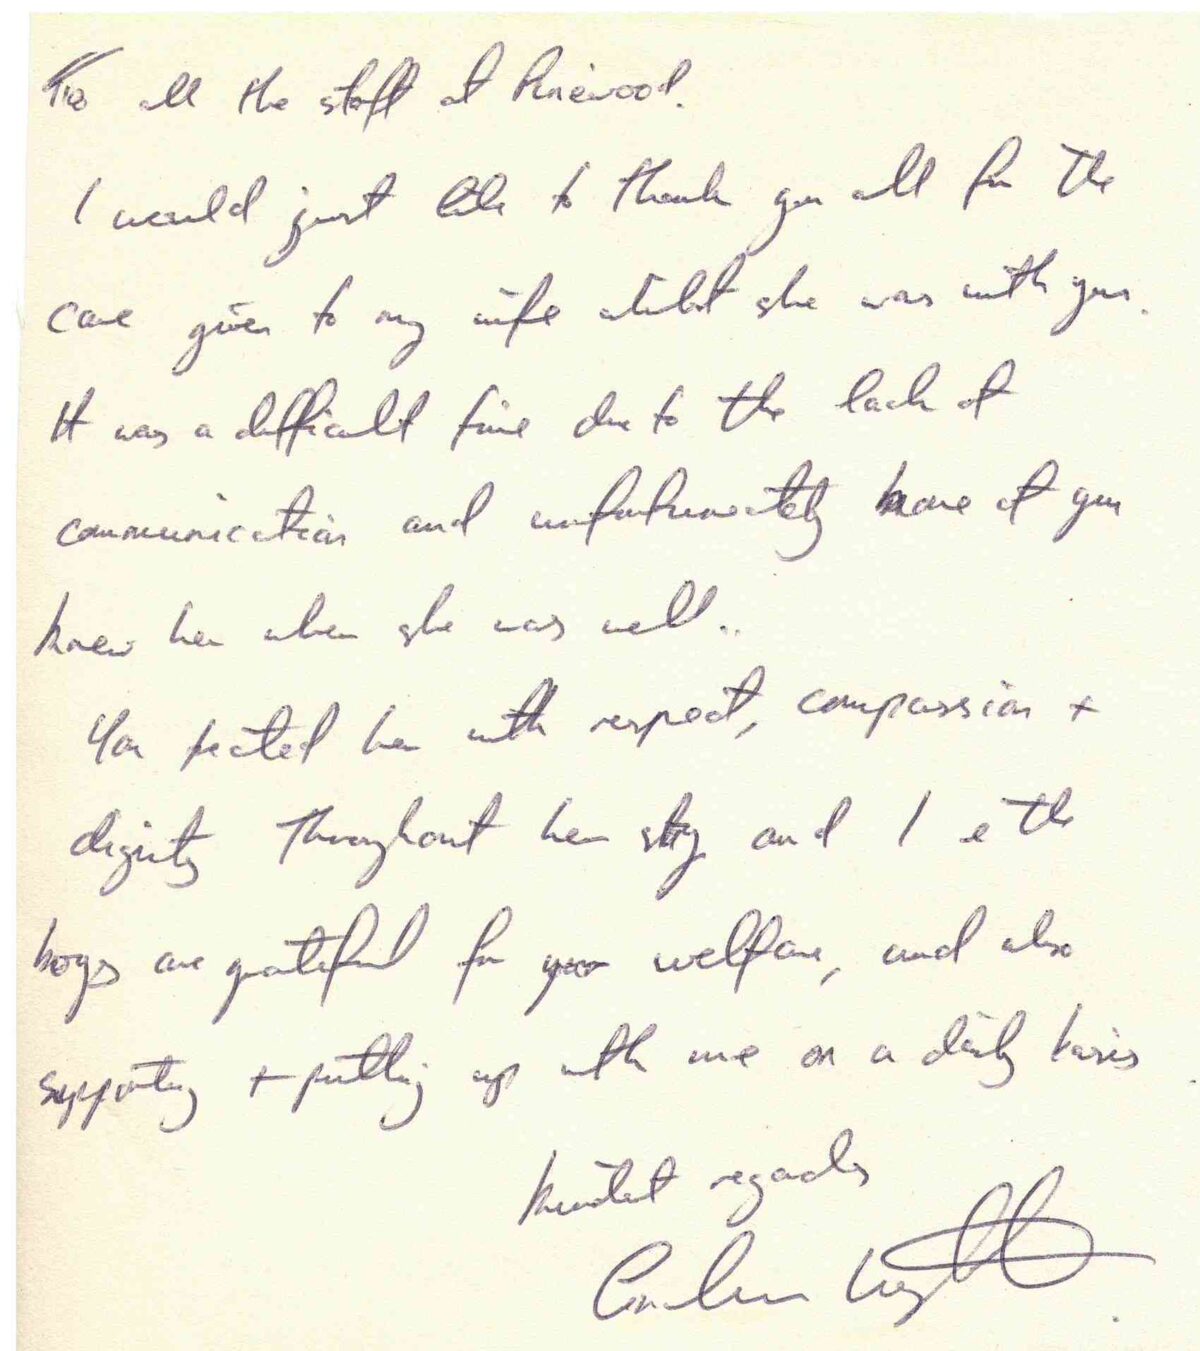 To all the staff at Pinewood.
I would just like to thank you all for the
care given to my wife whilst she was with you.
It was a difficult time due to the lack of
communication and unfortunately none of you
knew her when she was well..
You treated her with respect, compassion +
dignity throughout her stay and I & the
boys are grateful for your welfare, and also
supporting + putting up with me on a daily basis.
Kindest regards